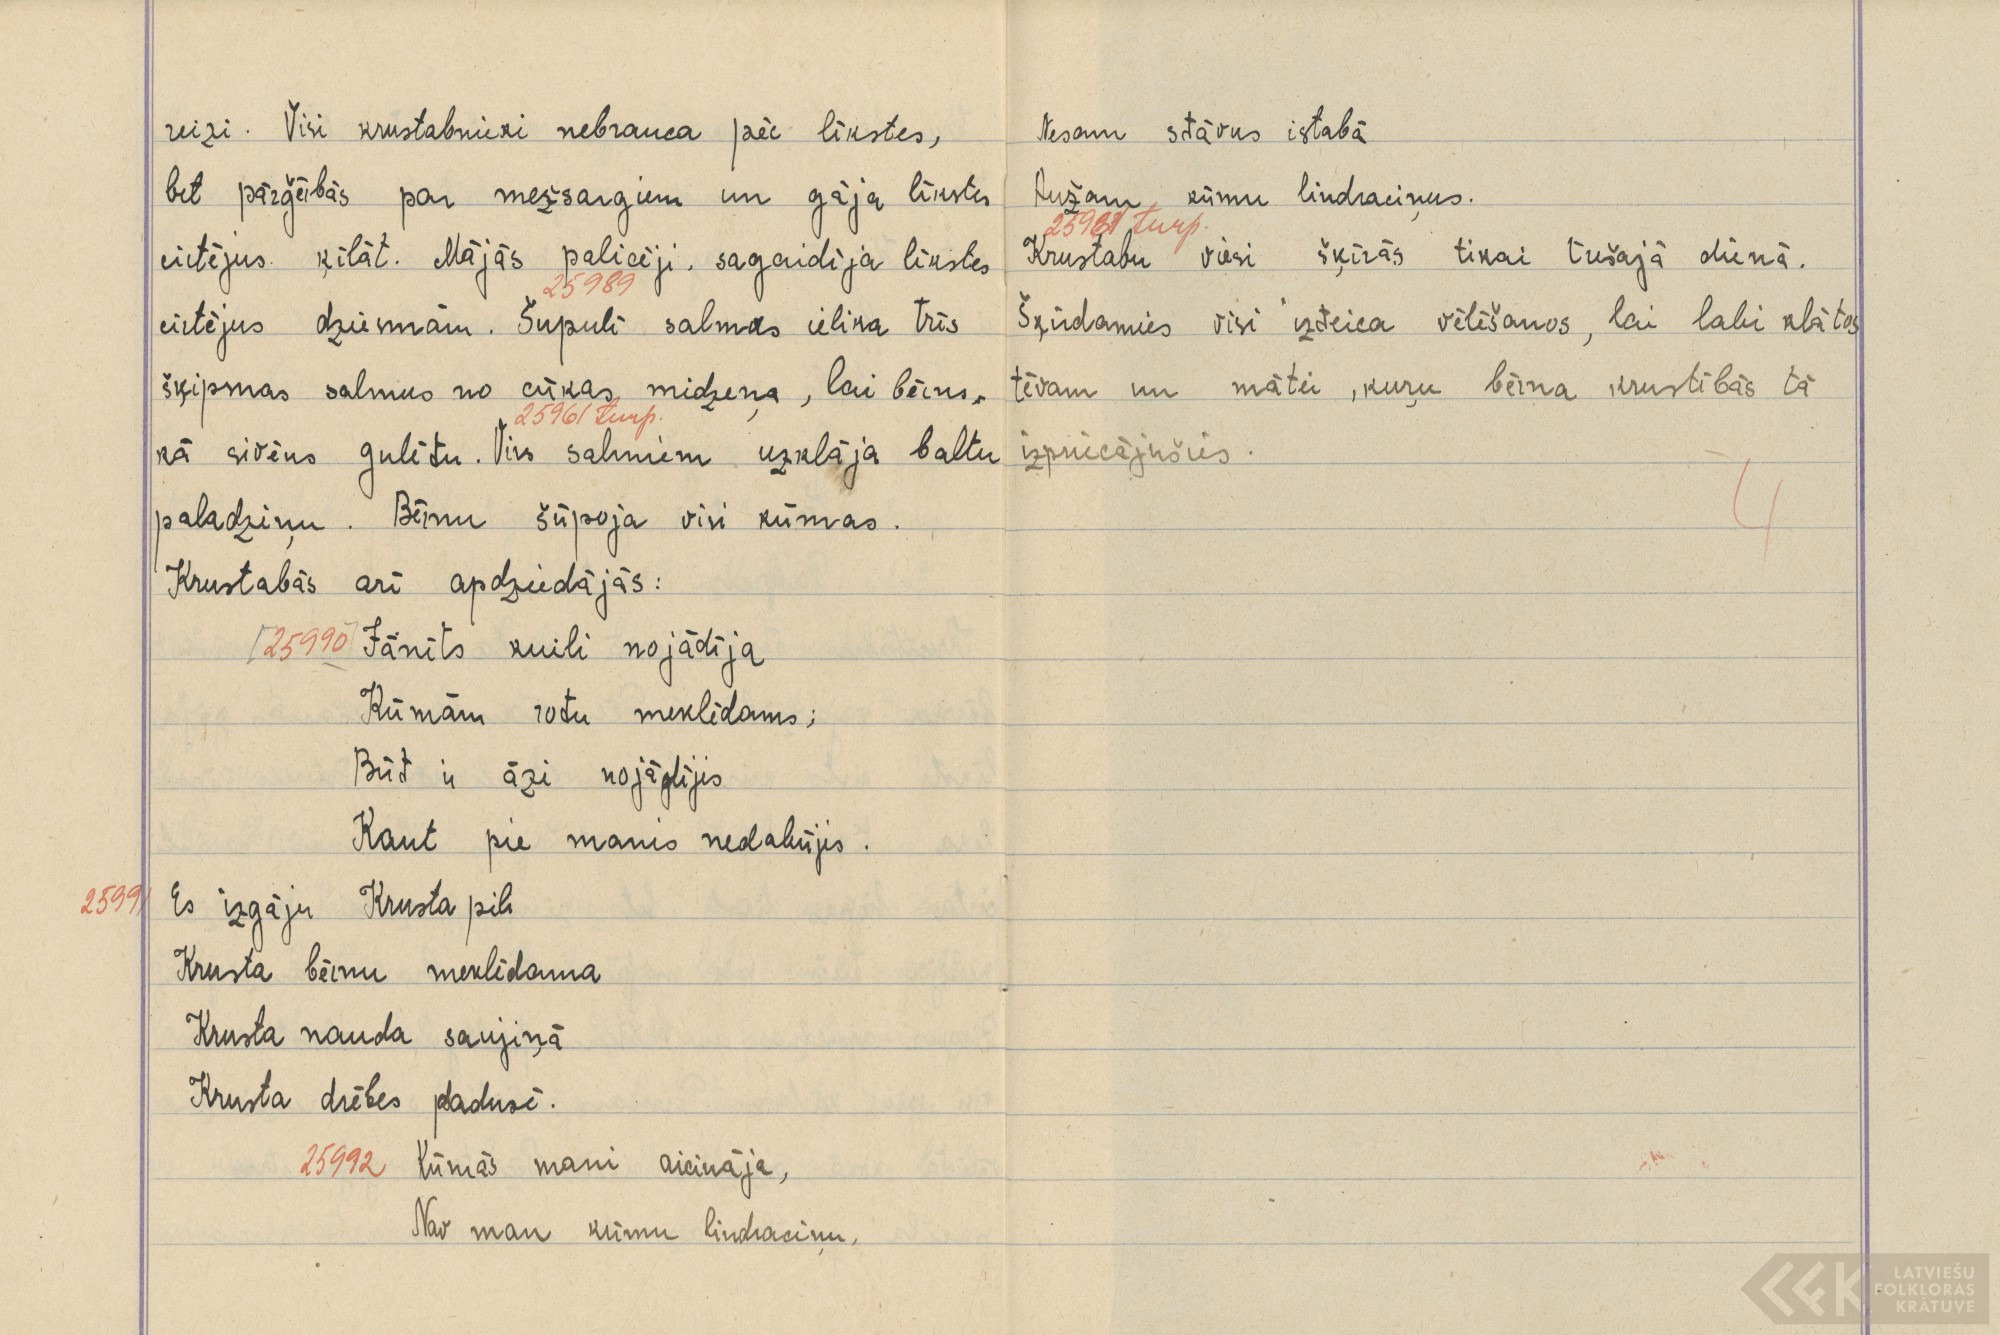 reizi. Visi krustabnieki nebrauca pēc līkstes,
bet pārģērbās par mežsargiem un gāja līkstes
cirtējus ķīlāt. Mājās palicēji sagaidīja līkstes
25989
cirtējus dziesmām. Šupulī salmos ielika trīs
šķipsnas salmus no cūkas midzeņa, lai bērns,
25961 turp.
kā sivēns gulētu. Virs salmiem uzklāja baltu
paladziņu. Bērnu šūpoja visi kūmas.
Krustabās arī apdziedājās:
25990 Jānīts kuili nojādīja
Kūmām rotu meklēdams;
Būt ir āzi nojādījis
Kaut pie manis nedabūjis.
25991 Es izgāju Krusta pili
Krusta bērnu meklēdama
Krusta nauda saujiņā
Krusta drēbes padusē.
25992 Kūmās mani aicināja,
Nav man kūmu lindraciņu,
Nesam stāvus istabā
kūmu lindraciņus.
25961 turp.
Krustabu viesi šķīrās tikai trešajā dienā.
Šķirdamies visi izteica vēlēšanos, lai labi klātos
tēvam un mātei, kuŗu bērna krustībās tā
izpriecājušies.
4
LATVIEŠU
FOLKLORAS
KRĀTUVE